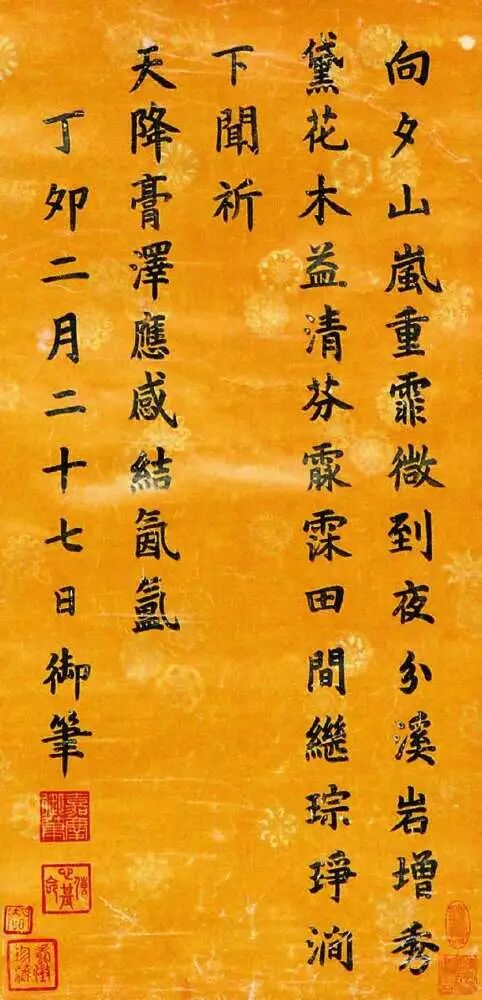 向夕山嵐重霏微到夜分溪岩增秀
黛花木益清芬霢霂田間繼琮琤澗
下聞祈
天降膏澤應感結氤氳
丁卯二月二十七日御筆
嘉慶御筆